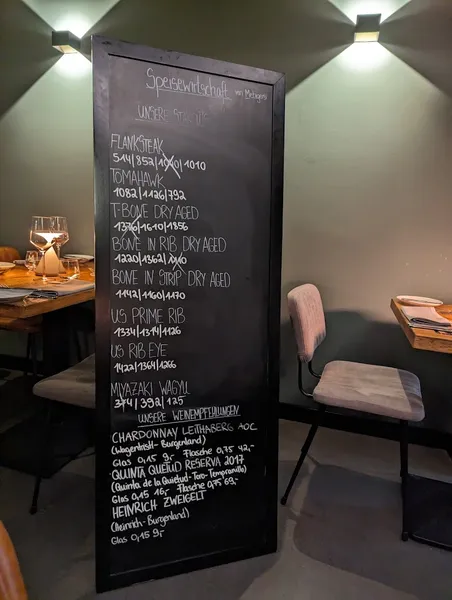 Speisewirtschaft von Metzgerei
UNSERE
FLANKSTEAK
514/852/1040/1010
TOMAHAWK
1082/1126/792
T-BONE DRY AGED
1376/1610/1856
BONE IN RIB DRY AGED
1220/1362/1110
BONE IN STRIP DRY AGED
1142/1160/1170
US PRIME RIB
1334/1314/1126
US RIB EYE
1422/1364/1266
MIYAZAKI WAGYU
374/392/125
UNSERE WEINEMPFEHLUNGEN
CHARDONNAY LEITHABERG AOC
(Wagentristl-Burgenland)
Glas 0,15 9,- Flasche 0,75 42,-
QUINTA QUETUD RESERVA 2017
(Quinta de la Quietud-Toro-Tempranillo)
Glas 0,15 16,- Flasche 0,75 69,-
HEINRICH ZWEIGELT
(Heinrich-Burgenland)
Glas 0,15 9,-